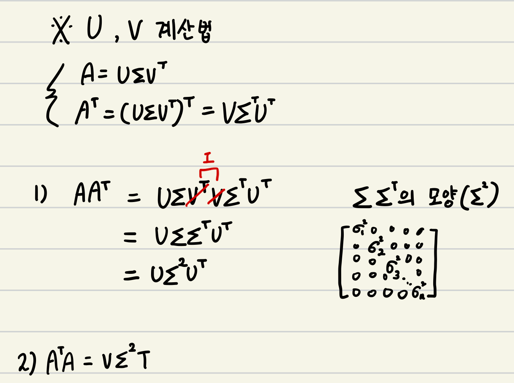 ※ U, V 계산법
A = UΣVᵀ
Aᵀ = (UΣVᵀ)ᵀ = VΣᵀUᵀ
I
1) AAᵀ = UΣVᵀVΣᵀUᵀ
= UΣΣᵀUᵀ
= UΣ²Uᵀ
ΣΣᵀ의 모양(Σ²)
σ₁² 0 0 0 0
0 σ₂² 0 0 0
0 0 σ₃² 0 0
0 0 0 ⋱ 0
0 0 0 0 σₙ²
2) AᵀA = VΣ²T